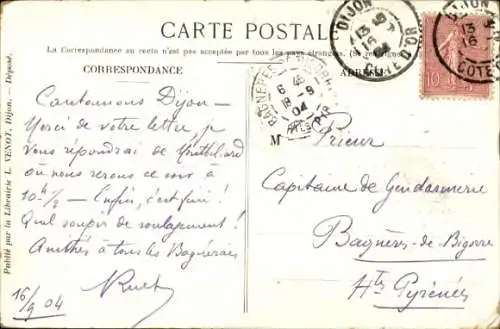 CARTE POSTALE
La Correspondance au recto n'est pas acceptée par tous les pays étrangers. (Se renseigner
CORRESPONDANCE
ADRESSE
DIJON
16
04
COTE D'OR
DIJON
16
COTE D'OR
10
BAGNERES DE BIGORRE
6
18 - 9
04
Htes PYR
Cantonnons Dijon —
Merci de votre lettre, je
vous répondrai de Montbéliard
où nous serons ce soir à
10h 1/2 — Enfin, c'est fini!
Quel soupir de soulagement!
Amitiés à tous les Bagnérais
16/9 04
M Prieur
Capitaine de Gendarmerie
Bagnères-de-Bigorre
Htes Pyrénées
Publié par la Librairie L. VENOT, Dijon. — Déposé.